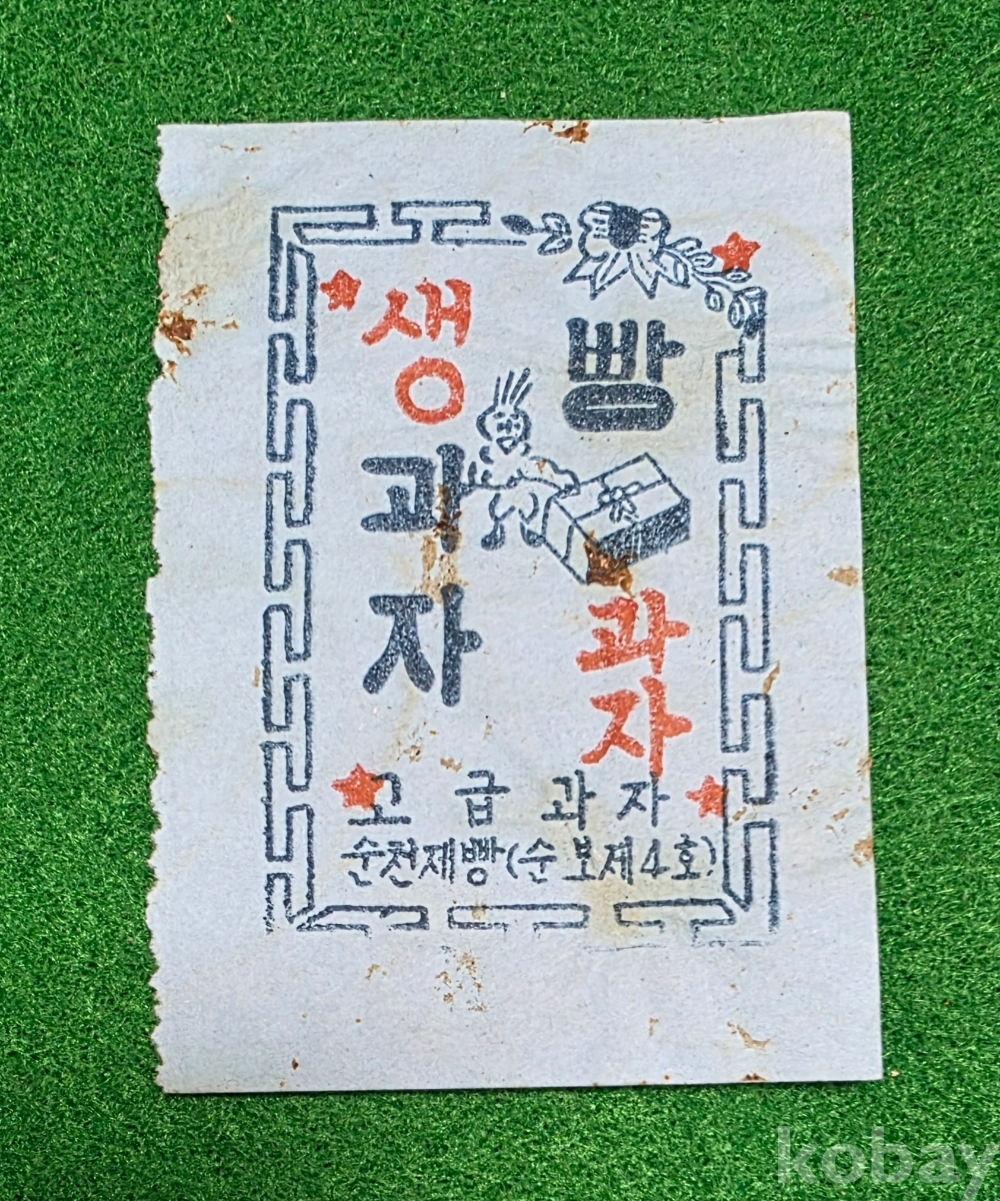 생과자
빵
과자
고급과자
순천제빵(순보제4호)
kobay